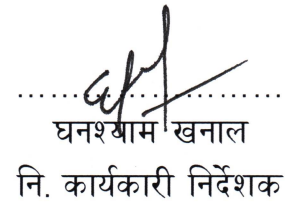 घनश्याम खनाल
नि. कार्यकारी निर्देशक